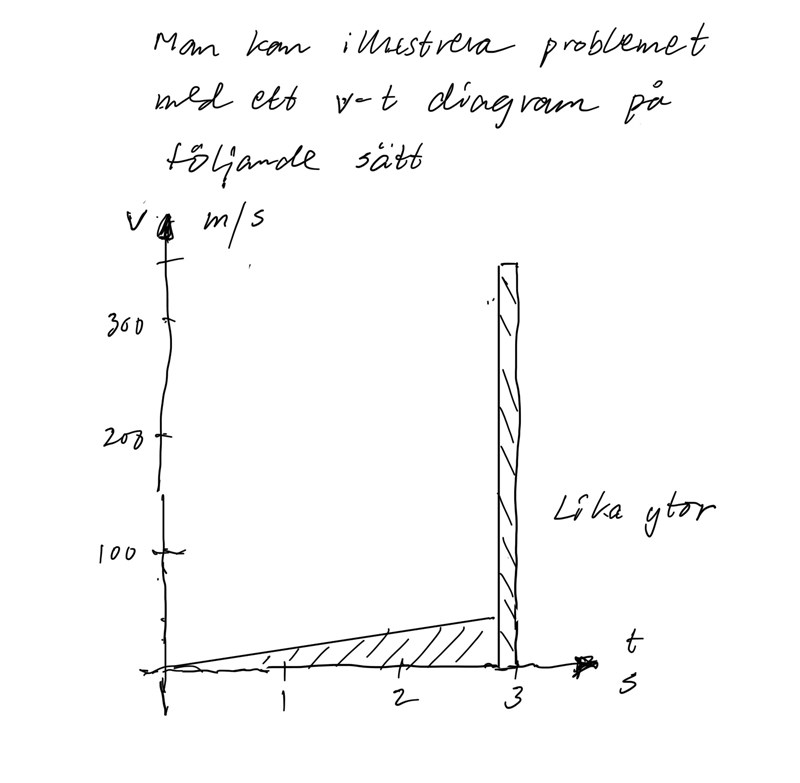 Man kan illustrera problemet
med ett v-t diagram på
följande sätt
v m/s
300
200
Lika ytor
100
t
1 2 3 s